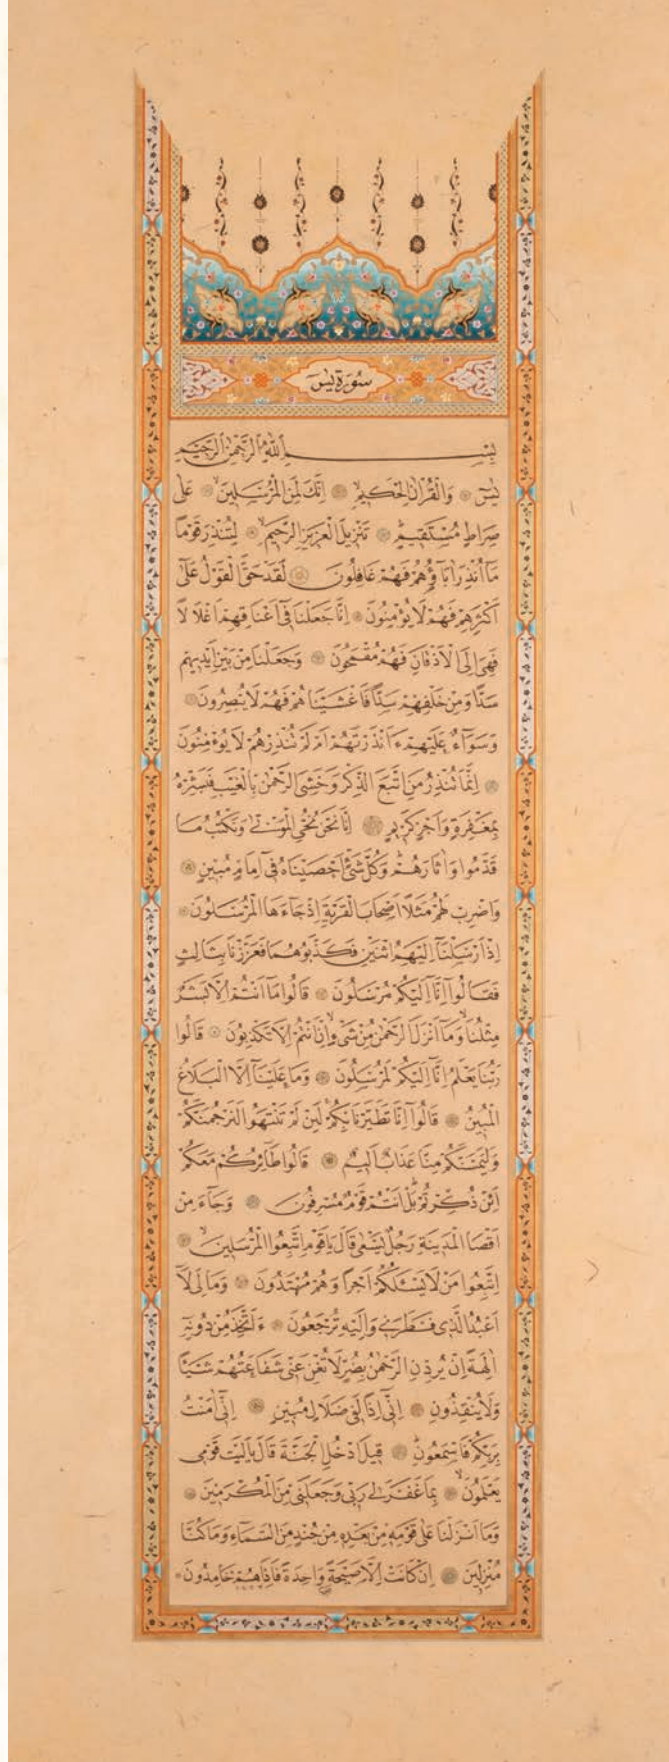 سُورَةُ يٰسٓ
بِسْمِ اللّٰهِ الرَّحْمٰنِ الرَّحٖيمِ
يٰسٓ وَالْقُرْاٰنِ الْحَكٖيمِۙ اِنَّكَ لَمِنَ الْمُرْسَلٖينَۙ عَلٰى
صِرَاطٍ مُسْتَقٖيمٍۜ تَنْزٖيلَ الْعَزٖيزِ الرَّحٖيمِۙ لِتُنْذِرَ قَوْمًا
مَٓا اُنْذِرَ اٰبَٓاؤُهُمْ فَهُمْ غَافِلُونَ لَقَدْ حَقَّ الْقَوْلُ عَلٰٓى
اَكْثَرِهِمْ فَهُمْ لَا يُؤْمِنُونَ اِنَّا جَعَلْنَا فٖٓى اَعْنَاقِهِمْ اَغْلَالًا
فَهِىَ اِلَى الْاَذْقَانِ فَهُمْ مُقْمَحُونَ وَجَعَلْنَا مِنْ بَيْنِ اَيْدٖيهِمْ
سَدًّا وَمِنْ خَلْفِهِمْ سَدًّا فَاَغْشَيْنَاهُمْ فَهُمْ لَا يُبْصِرُونَ
وَسَوَٓاءٌ عَلَيْهِمْ ءَاَنْذَرْتَهُمْ اَمْ لَمْ تُنْذِرْهُمْ لَا يُؤْمِنُونَ
اِنَّمَا تُنْذِرُ مَنِ اتَّبَعَ الذِّكْرَ وَخَشِىَ الرَّحْمٰنَ بِالْغَيْبِۚ فَبَشِّرْهُ
بِمَغْفِرَةٍ وَاَجْرٍ كَرٖيمٍ اِنَّا نَحْنُ نُحْيِ الْمَوْتٰى وَنَكْتُبُ مَا
قَدَّمُوا وَاٰثَارَهُمْۜ وَكُلَّ شَىْءٍ اَحْصَيْنَاهُ فٖٓى اِمَامٍ مُبٖينٍ
وَاضْرِبْ لَهُمْ مَثَلًا اَصْحَابَ الْقَرْيَةِۘ اِذْ جَٓاءَهَا الْمُرْسَلُونَ
اِذْ اَرْسَلْنَٓا اِلَيْهِمُ اثْنَيْنِ فَكَذَّبُوهُمَا فَعَزَّزْنَا بِثَالِثٍ
فَقَالُٓوا اِنَّٓا اِلَيْكُمْ مُرْسَلُونَ قَالُوا مَٓا اَنْتُمْ اِلَّا بَشَرٌ
مِثْلُنَاۙ وَمَٓا اَنْزَلَ الرَّحْمٰنُ مِنْ شَىْءٍۙ اِنْ اَنْتُمْ اِلَّا تَكْذِبُونَ قَالُوا
رَبُّنَا يَعْلَمُ اِنَّٓا اِلَيْكُمْ لَمُرْسَلُونَ وَمَا عَلَيْنَٓا اِلَّا الْبَلَاغُ
الْمُبٖينُ قَالُٓوا اِنَّا تَطَيَّرْنَا بِكُمْۚ لَئِنْ لَمْ تَنْتَهُوا لَنَرْجُمَنَّكُمْ
وَلَيَمَسَّنَّكُمْ مِنَّا عَذَابٌ اَلٖيمٌ قَالُوا طَٓائِرُكُمْ مَعَكُمْۜ
اَئِنْ ذُكِّرْتُمْۜ بَلْ اَنْتُمْ قَوْمٌ مُسْرِفُونَ وَجَٓاءَ مِنْ
اَقْصَا الْمَدٖينَةِ رَجُلٌ يَسْعٰى قَالَ يَا قَوْمِ اتَّبِعُوا الْمُرْسَلٖينَۙ
اِتَّبِعُوا مَنْ لَا يَسْـَٔلُكُمْ اَجْرًا وَهُمْ مُهْتَدُونَ وَمَا لِىَ لَٓا
اَعْبُدُ الَّذٖى فَطَرَنٖى وَاِلَيْهِ تُرْجَعُونَ ءَاَتَّخِذُ مِنْ دُونِهٖٓ
اٰلِهَةً اِنْ يُرِدْنِ الرَّحْمٰنُ بِضُرٍّ لَا تُغْنِ عَنّٖى شَفَاعَتُهُمْ شَيْـًٔا
وَلَا يُنْقِذُونِ اِنّٖٓى اِذًا لَفٖى ضَلَالٍ مُبٖينٍ اِنّٖٓى اٰمَنْتُ
بِرَبِّكُمْ فَاسْمَعُونِۜ قٖيلَ ادْخُلِ الْجَنَّةَۜ قَالَ يَا لَيْتَ قَوْمٖى
يَعْلَمُونَۙ بِمَا غَفَرَ لٖى رَبّٖى وَجَعَلَنٖى مِنَ الْمُكْرَمٖينَ
وَمَٓا اَنْزَلْنَا عَلٰى قَوْمِهٖ مِنْ بَعْدِهٖ مِنْ جُنْدٍ مِنَ السَّمَٓاءِ وَمَا كُنَّا
مُنْزِلٖينَ اِنْ كَانَتْ اِلَّا صَيْحَةً وَاحِدَةً فَاِذَا هُمْ خَامِدُونَ